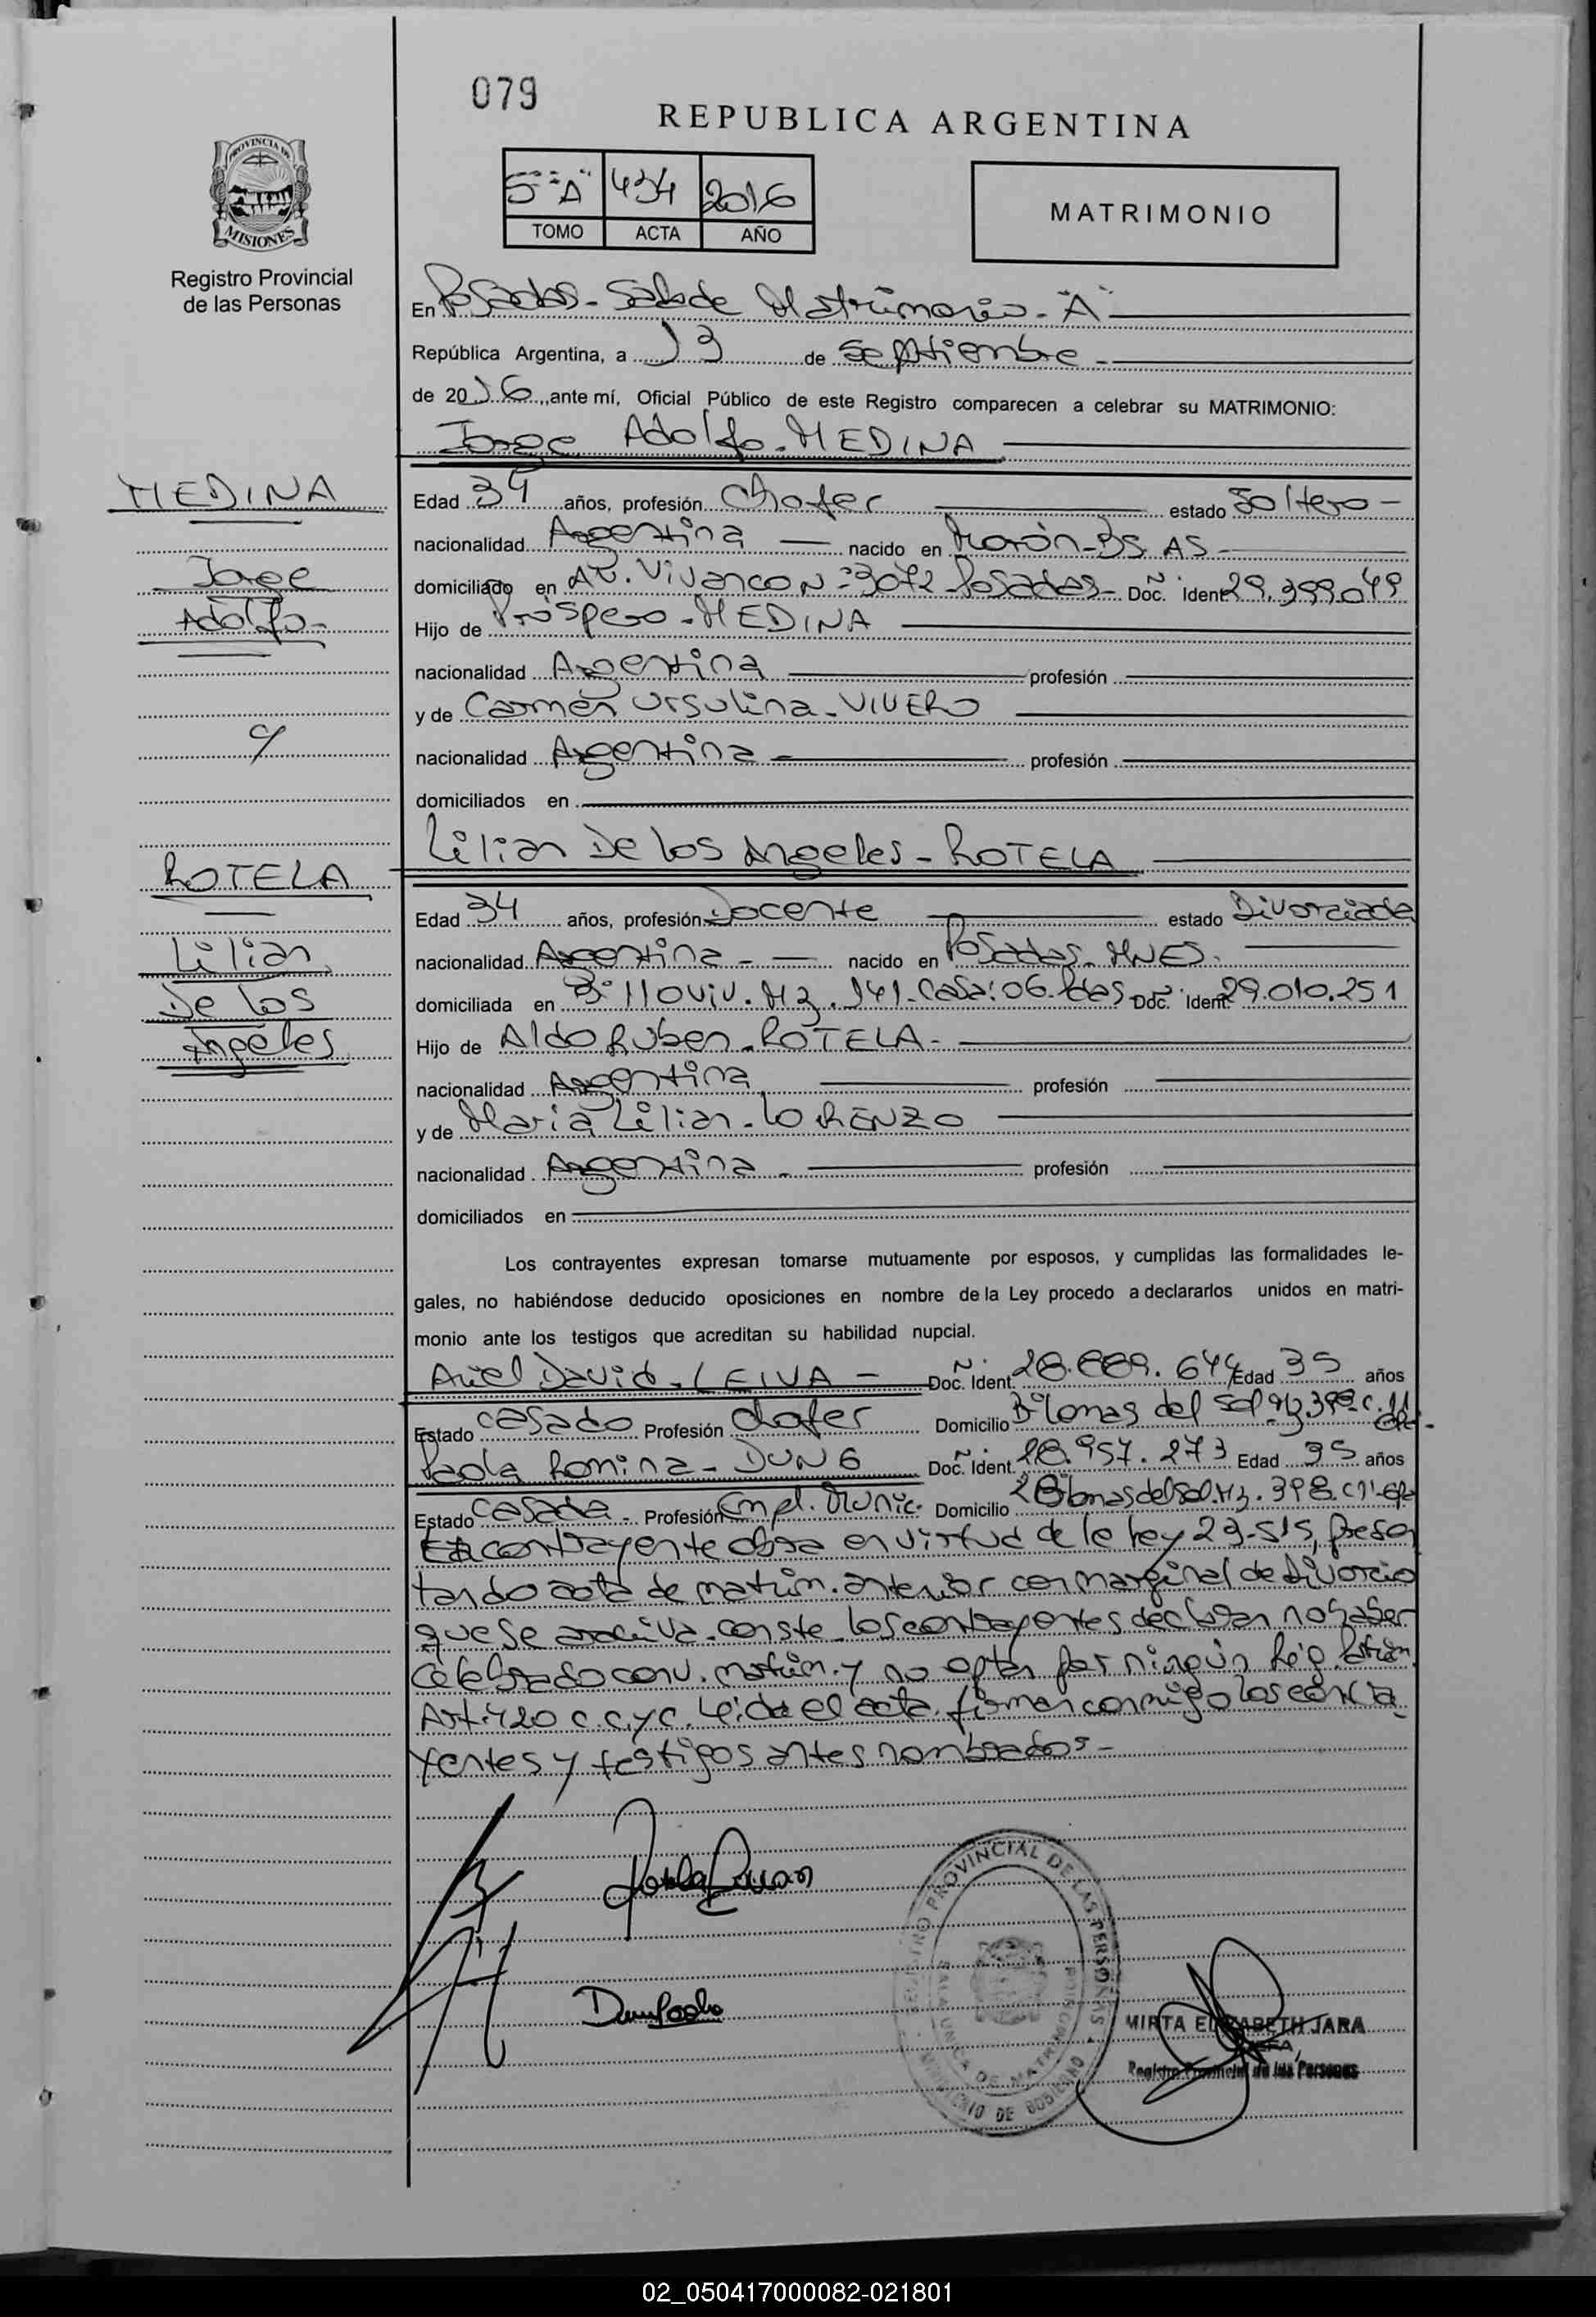 079
REPUBLICA ARGENTINA
5º "A" 434 2016
TOMO ACTA AÑO
MATRIMONIO
PROVINCIA DE
MISIONES
Registro Provincial
de las Personas
En Posadas - Sala de Matrimonio - "A"
República Argentina, a 13 de Septiembre -
de 2016, ante mí, Oficial Público de este Registro comparecen a celebrar su MATRIMONIO:
Jorge Adolfo - MEDINA
MEDINA
Jorge
Adolfo -
c/
Edad 34 años, profesión Chofer estado Soltero -
nacionalidad Argentina nacido en Morón - Bs. AS -
domiciliado en AV. Vivanco Nº 3072 - Posadas - Doc. Ident 29.399.049
Hijo de Próspero - MEDINA
nacionalidad Argentina profesión
y de Carmen Ursulina - VIVERO
nacionalidad Argentina - profesión
domiciliados en
Lilian De los Angeles - ROTELA
ROTELA
Lilian
De los
Angeles
Edad 34 años, profesión Docente estado Divorciada
nacionalidad Argentina - nacido en Posadas - MNES.
domiciliada en Bº 110 Viv. Mz. 141 - Casa: 06 - Pdas - Doc. Ident. 29.010.251
Hijo de Aldo Ruben - ROTELA -
nacionalidad Argentina profesión
y de Maria Lilian - LORENZO
nacionalidad Argentina - profesión
domiciliados en
Los contrayentes expresan tomarse mutuamente por esposos, y cumplidas las formalidades le-
gales, no habiéndose deducido oposiciones en nombre de la Ley procedo a declararlos unidos en matri-
monio ante los testigos que acreditan su habilidad nupcial.
Ariel David - LEIVA - Doc. Ident. 28.889.644 Edad 35 años
Estado Casado Profesión Chofer Domicilio Bº Lomas del Sol Mz 398 - C. 11
Paola Romina - DUNG Doc. Ident. 28.957.273 Edad 35 años
Estado Casada - Profesión Empl. Munic. Domicilio Lomas del Sol. Mz. 398. C 11
La contrayente obra en virtud de la Ley 23-515, presen
tando acta de matrim. anterior con marginal de Divorcio
que se archiva. conste. los contrayentes declaran no haber
celebrado conv. matrim. y no optar por ningún Rég. Patrim.
Art. 420 c.c.y c. Leida el acta. firman conmigo los contra
yentes y testigos antes nombrados -
REGISTRO PROVINCIAL DE LAS PERSONAS
SALA UNICA DE MATRIMONIO
MINISTERIO DE GOBIERNO
MIRTA ELIZABETH JARA
JEFA
Registro Provincial de las Personas
02_050417000082-021801